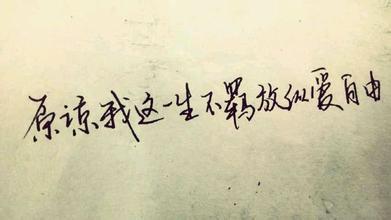 原谅我这一生不羁放纵爱自由